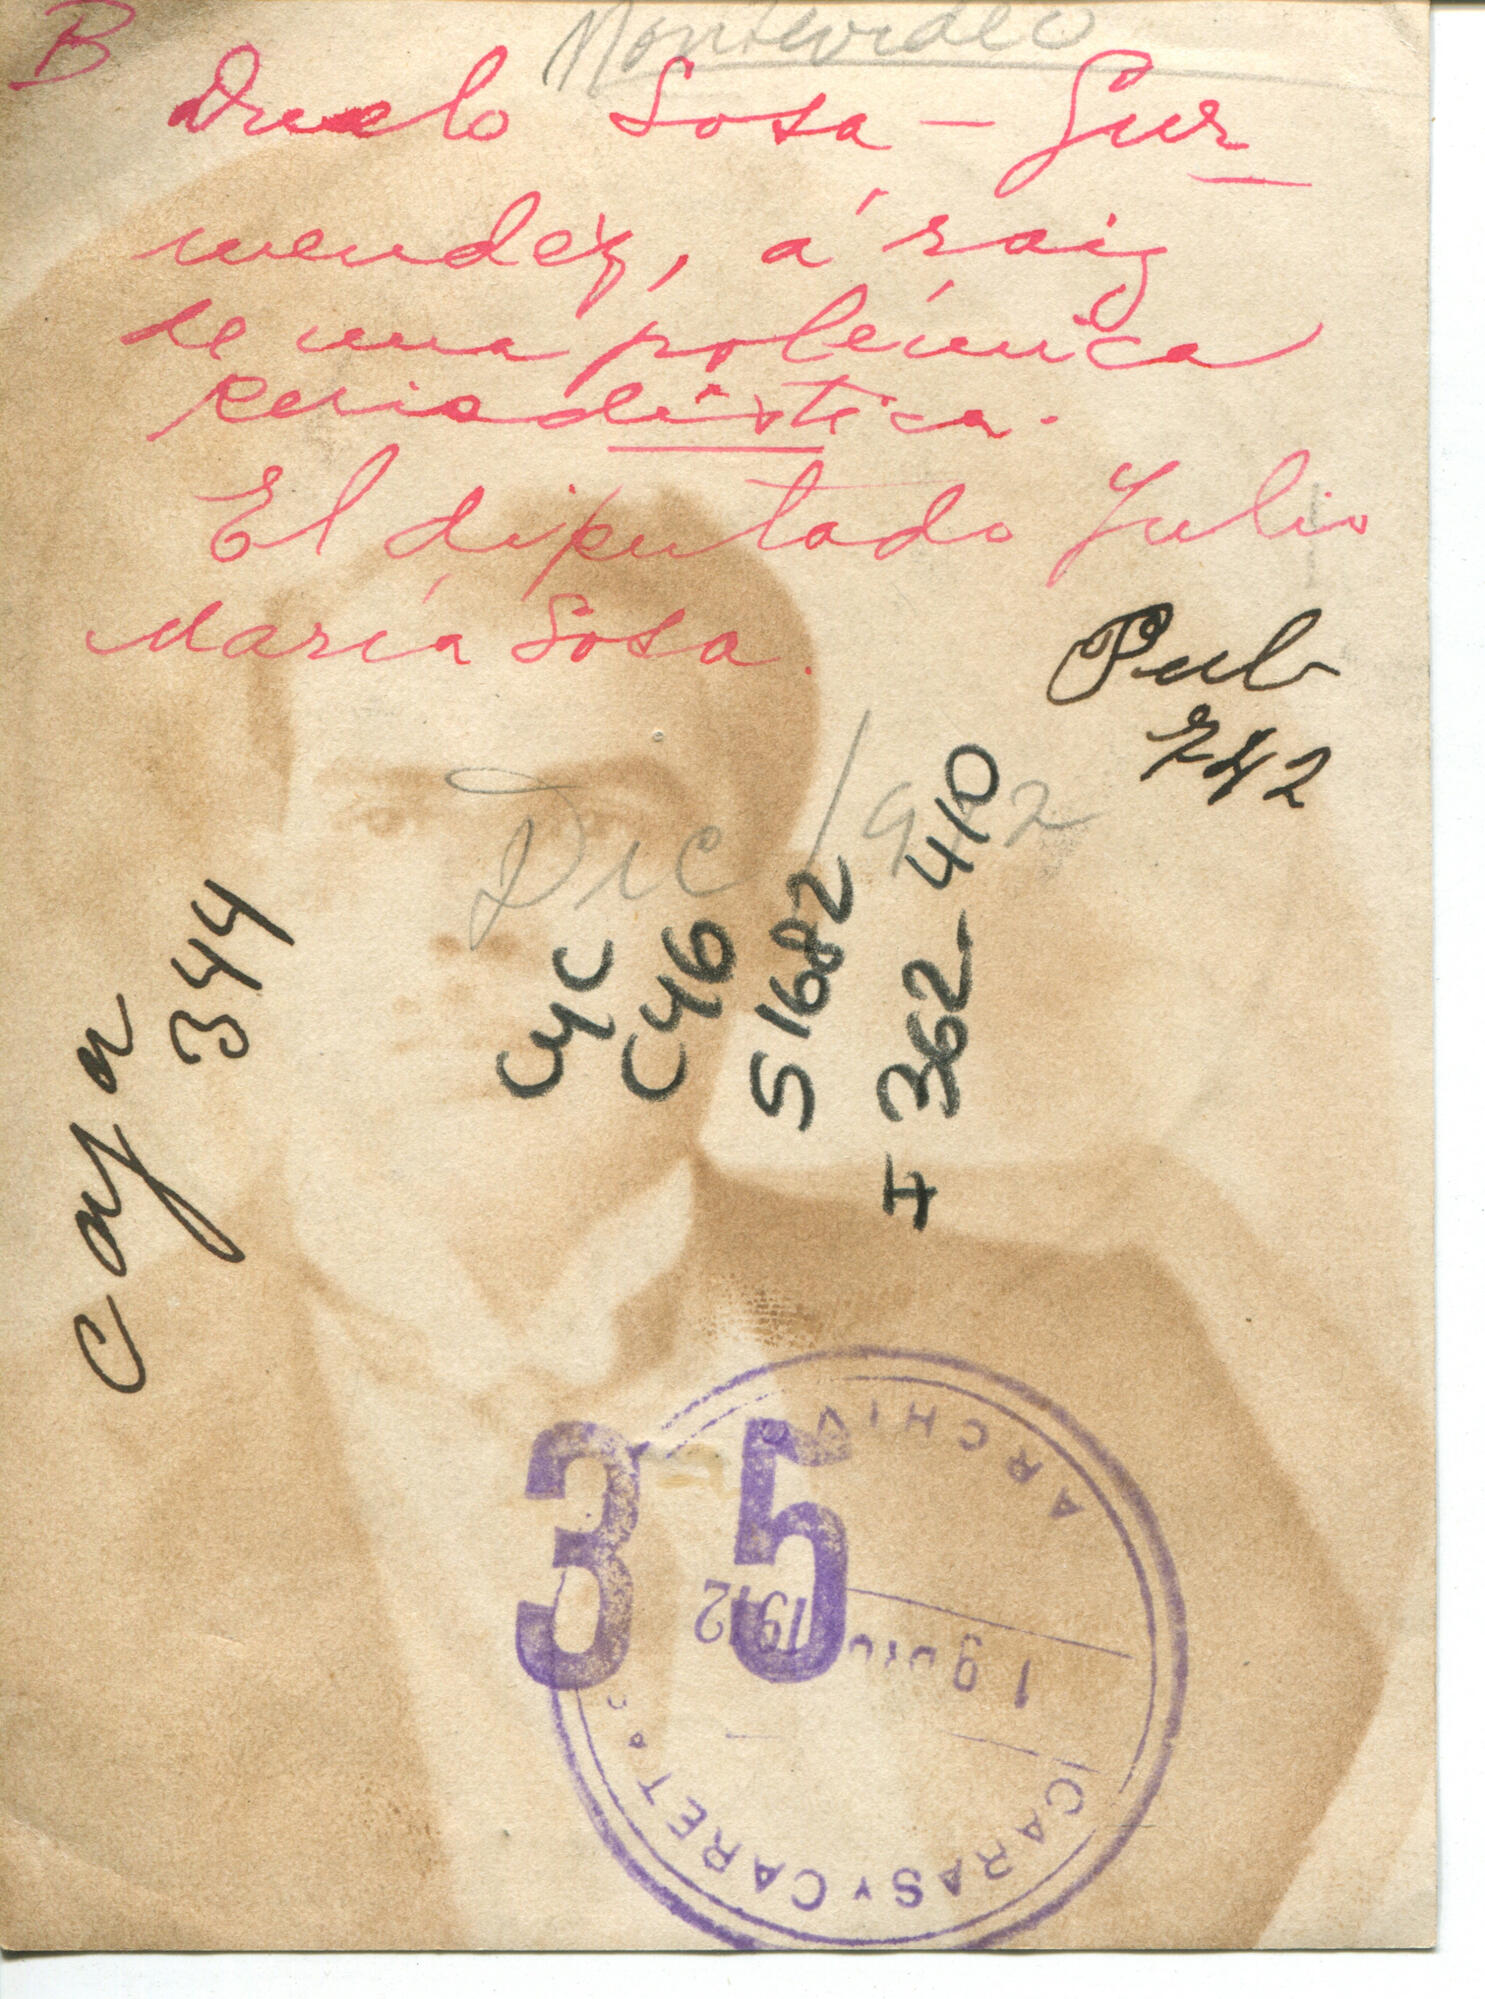 B
Montevideo
Duelo Sosa - Gur
mendez, á raiz
de una polémica
periodística.
El diputado Julio
María Sosa.
Pub
742
Dic/912
Caja
344
CyC
C46
S1682
I 362-410
35
ARCHIVO
19 DIC. 1912
CARAS Y CARETAS